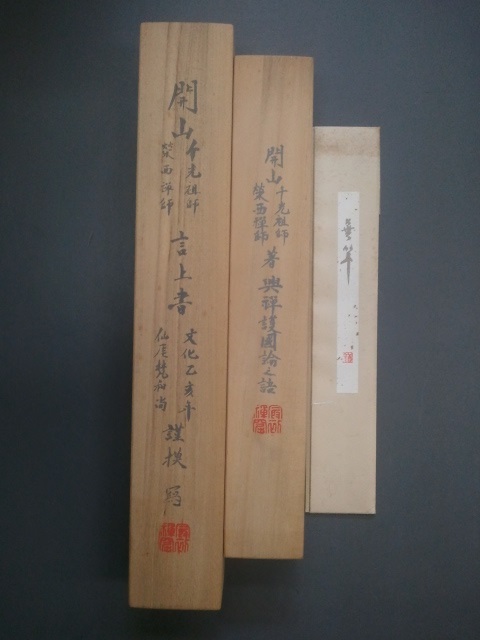 開山千光祖師
栄西禅師
言上書
文化乙亥年
仙厓梵和尚
謹模寫
開山千光祖師
栄西禅師
著興禅護國論之語